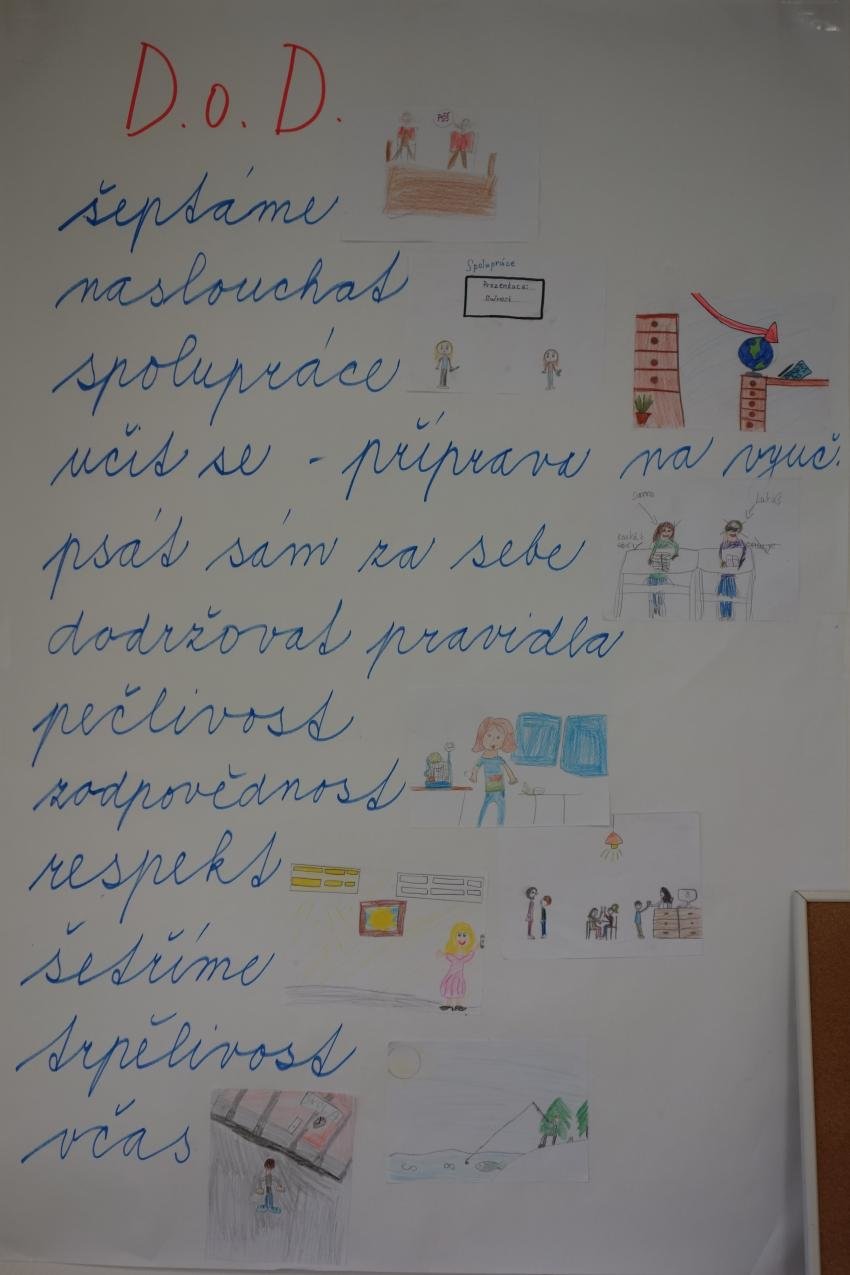 D.o.D.
šeptáme
naslouchat
Spolupráce
Prezentace:
spolupráce
učit se - příprava na vyuč.
psát sám za sebe
dodržovat pravidla
pečlivost
zodpovědnost
respekt
šetříme
trpělivost
včas